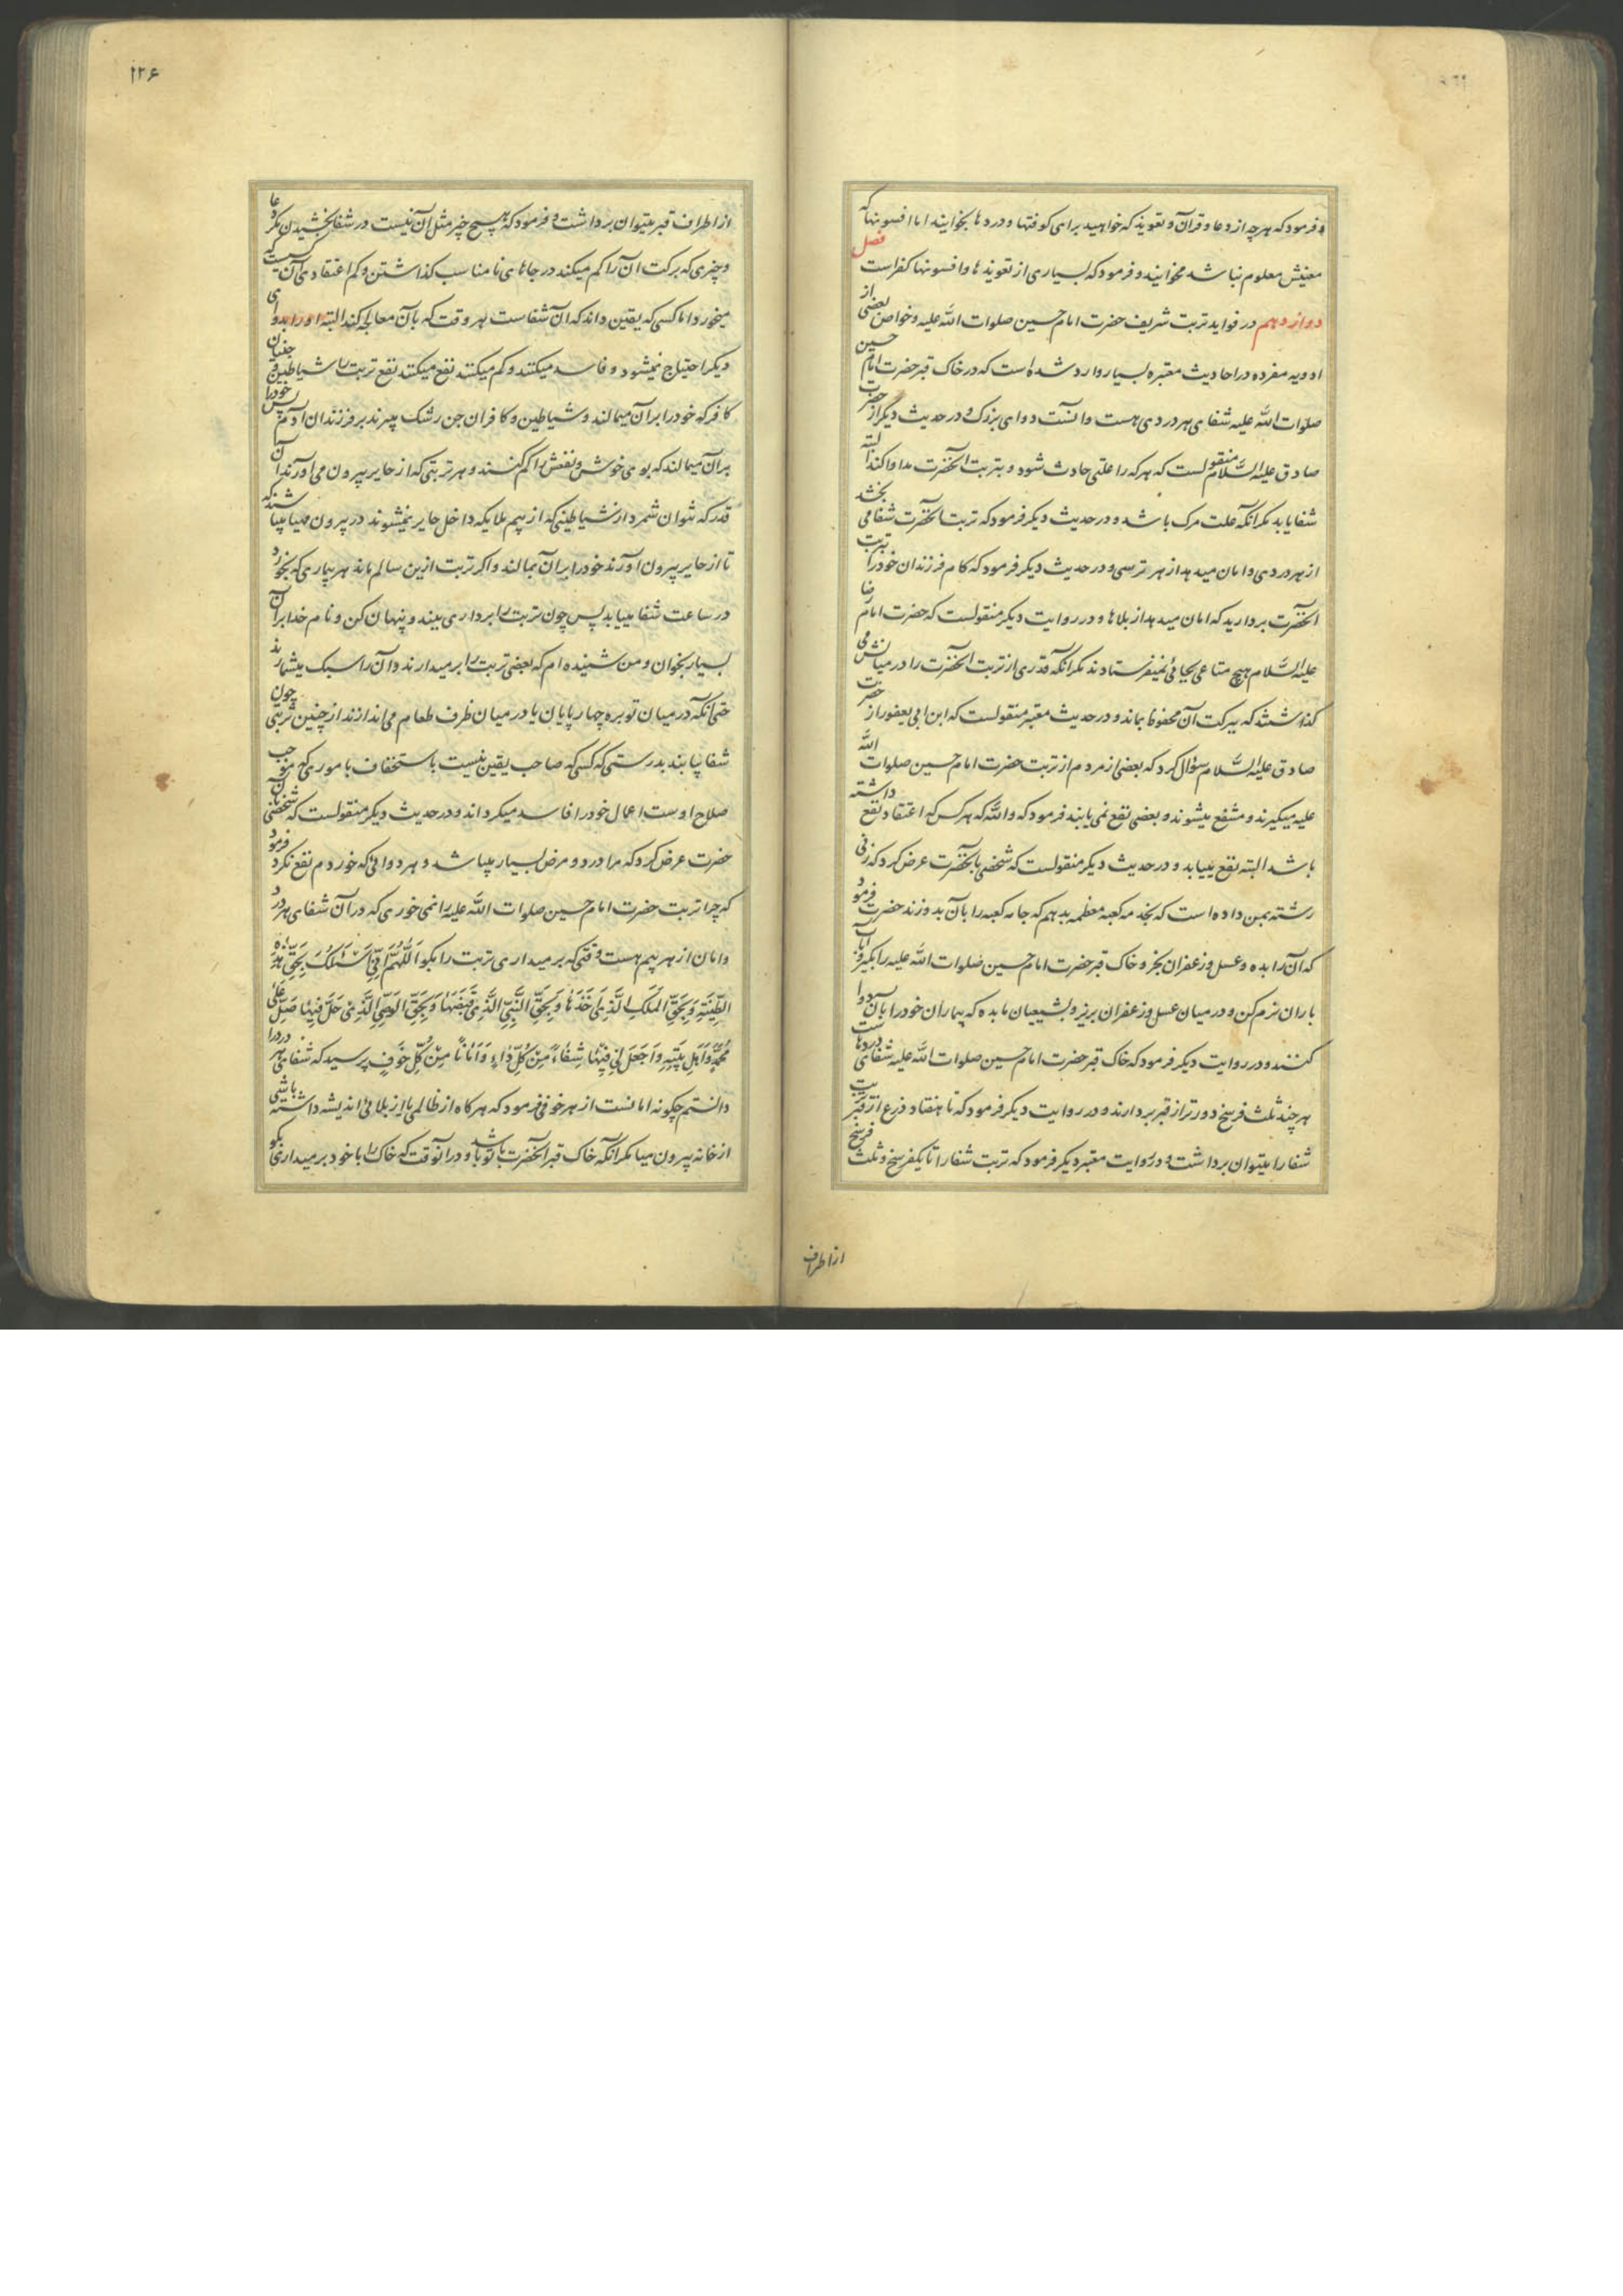 و فرمود که هر چه از دعا و قرآن و تعویذ که خواهید برای کوفتها و دردها بخوانید اما افسونها که
معنیش معلوم نباشد مخوانید و فرمود که بسیاری از تعویذها و افسونها کفر است فصل
دوازدهم در فواید تربت شریف حضرت امام حسین صلوات الله علیه و خواص بعضی از
ادویه مفرده در احادیث معتبره بسیار وارد شده است که در خاک قبر حضرت امام حسین
صلوات الله علیه شفای هر دردی هست و آنست دوای بزرک و در حدیث دیگر از حضرت
صادق علیه السلام منقولست که هر که را علتی حادث شود و بتربت آنحضرت مداوا کند البته
شفا یابد مکر آنکه علت مرک باشد و در حدیث دیکر فرمود که تربت آنحضرت شفا می بخشد
از هر دردی و امان میدهد از هر ترسی و در حدیث دیکر فرمود که کام فرزندان خود را تربت
آنحضرت بردارید که امان میدهد از بلاها و در روایت دیکر منقولست که حضرت امام رضا
علیه السلام هیچ متاعی بجائی نمیفرستادند مکر آنکه قدری از تربت آنحضرت را در میانش می
کذاشتند که ببرکت آن محفوظ بماند و در حدیث معتبر منقولست که ابن ابی یعفور از حضرت
صادق علیه السلام سؤال کرد که بعضی از مردم از تربت حضرت امام حسین صلوات الله
علیه میکیرند و منتفع میشوند و بعضی نفع نمی یابند فرمود که والله که هر کس که اعتقاد نفع داشته
باشد البته نفع مییابد و در حدیث دیکر منقولست که شخصی بآنحضرت عرض کرد که زنی
رشته بمن داده است که بخدمه کعبه معظمه بدهم که جامه کعبه را بآن بدوزند حضرت فرمود
که آن را بده و عسل و زعفران بخر و خاک قبر حضرت امام حسین صلوات الله علیه را بکیر و بآب
باران نرم کن و در میان عسل و زعفران بریز و بشیعیان ما بده که بیماران خود را بآن دوا
کنند و در روایت دیکر فرمود که خاک قبر حضرت امام حسین صلوات الله علیه شفای دردهاست
هر چند ثلث فرسخ دورتر از قبر بردارند و در روایت دیکر فرمود که تا هفتاد ذرع از قبر تربت
شفا را میتوان برداشت و در روایت معتبر دیکر فرمود که تربت شفا را تا یکفرسخ و ثلث فرسخ
از اطراف
۱۲۶
از اطراف قبر میتوان برداشت و فرمود که هیچ چیز مثل آن نیست در شفا بخشیدن مکر دعا
و چیزی که برکت آن را کم میکند در جاهای نامناسب کذاشتن و کم اعتقادی آن کسیست که
میخورد اما کسی که یقین داند که آن شفاست هر وقت که بآن معالجه کند البته او را بدوای
دیکر احتیاج نمیشود و فاسد میکنند و کم میکنند نفع میکنند نفع تربت را شیاطین و جنیان
کافر که خود را بر آن میمالند و شیاطین و کافران جن رشک میبرند بر فرزندان آدم پس خود را
بر آن میمالند که بوی خوش و نفعش را کم کنند و هر تربتی که از حایر بیرون می آورند آن
قدر که نتوان شمرد از شیاطینی که از بیم ملایکه داخل حایر نمیشوند در بیرون مهیا میباشند که
تا از حایر بیرون آورند خود را بر آن بمالند و اکر تربت ازین سالم ماند هر بیماری که بخورد
در ساعت شفا مییابد پس چون تربت را برداری ببند و پنهان کن و نام خدا بر آن
بسیار بخوان و من شنیده ام که بعضی تربت را برمیدارند و آن را سبک میشمارند
حتی آنکه در میان توبره چهارپایان یا در میان ظرف طعام می اندازند از چنین تربتی چون
شفا یابند بدرستی که کسی که صاحب یقین نیست باستخفاف باموری که موجب
صلاح اوست اعمال خود را فاسد میکرداند و در حدیث دیکر منقولست که شخصی بآن
حضرت عرض کرد که مرا درد و مرض بسیار میباشد و هر دوائی که خوردم نفع نکرد فرمود
که چرا تربت حضرت امام حسین صلوات الله علیه را نمی خوری که در آن شفای هر درد
و امان از هر بیم هست وقتی که برمیداری تربت را بکو اَللّٰهُمَّ اِنّی اَسْئَلُکَ بِحَقِّ هٰذِهِ
الطّینَةِ وَ بِحَقِّ الْمَلَکِ الَّذی اَخَذَها وَ بِحَقِّ النَّبِیِّ الَّذی قَبَضَها وَ بِحَقِّ الْوَصِیِّ الَّذی حَلَّ فیها صَلِّ عَلی
مُحَمَّدٍ وَ اَهْلِ بَیْتِهِ وَ اجْعَلْ لی فیها شِفاءً مِنْ کُلِّ داءٍ وَ اَماناً مِنْ کُلِّ خَوْفٍ پرسید که شفای هر درد را
دانستم چکونه امانست از هر خوفی فرمود که هرکاه از ظالمی یا از بلائی اندیشه داشته باشی
از خانه بیرون میا مکر آنکه خاک قبر آنحضرت با تو باشد و در آنوقت که خاک را با خود برمیداری بکو